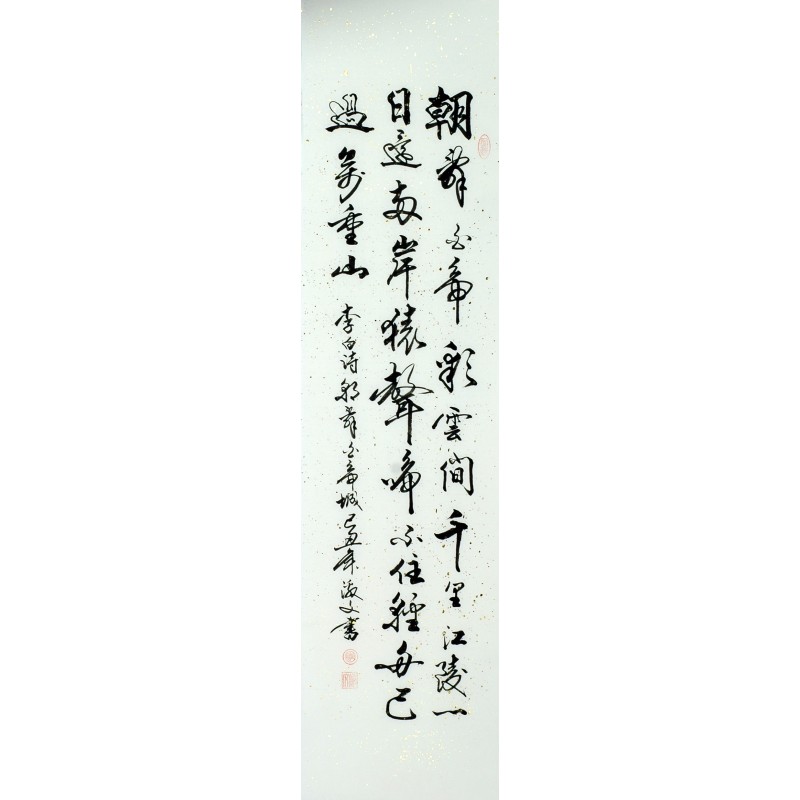 朝辞白帝彩雲間千里江陵一
日還两岸猿聲啼不住輕舟已
過萬重山
李白诗朝辞白帝城己丑年海文書